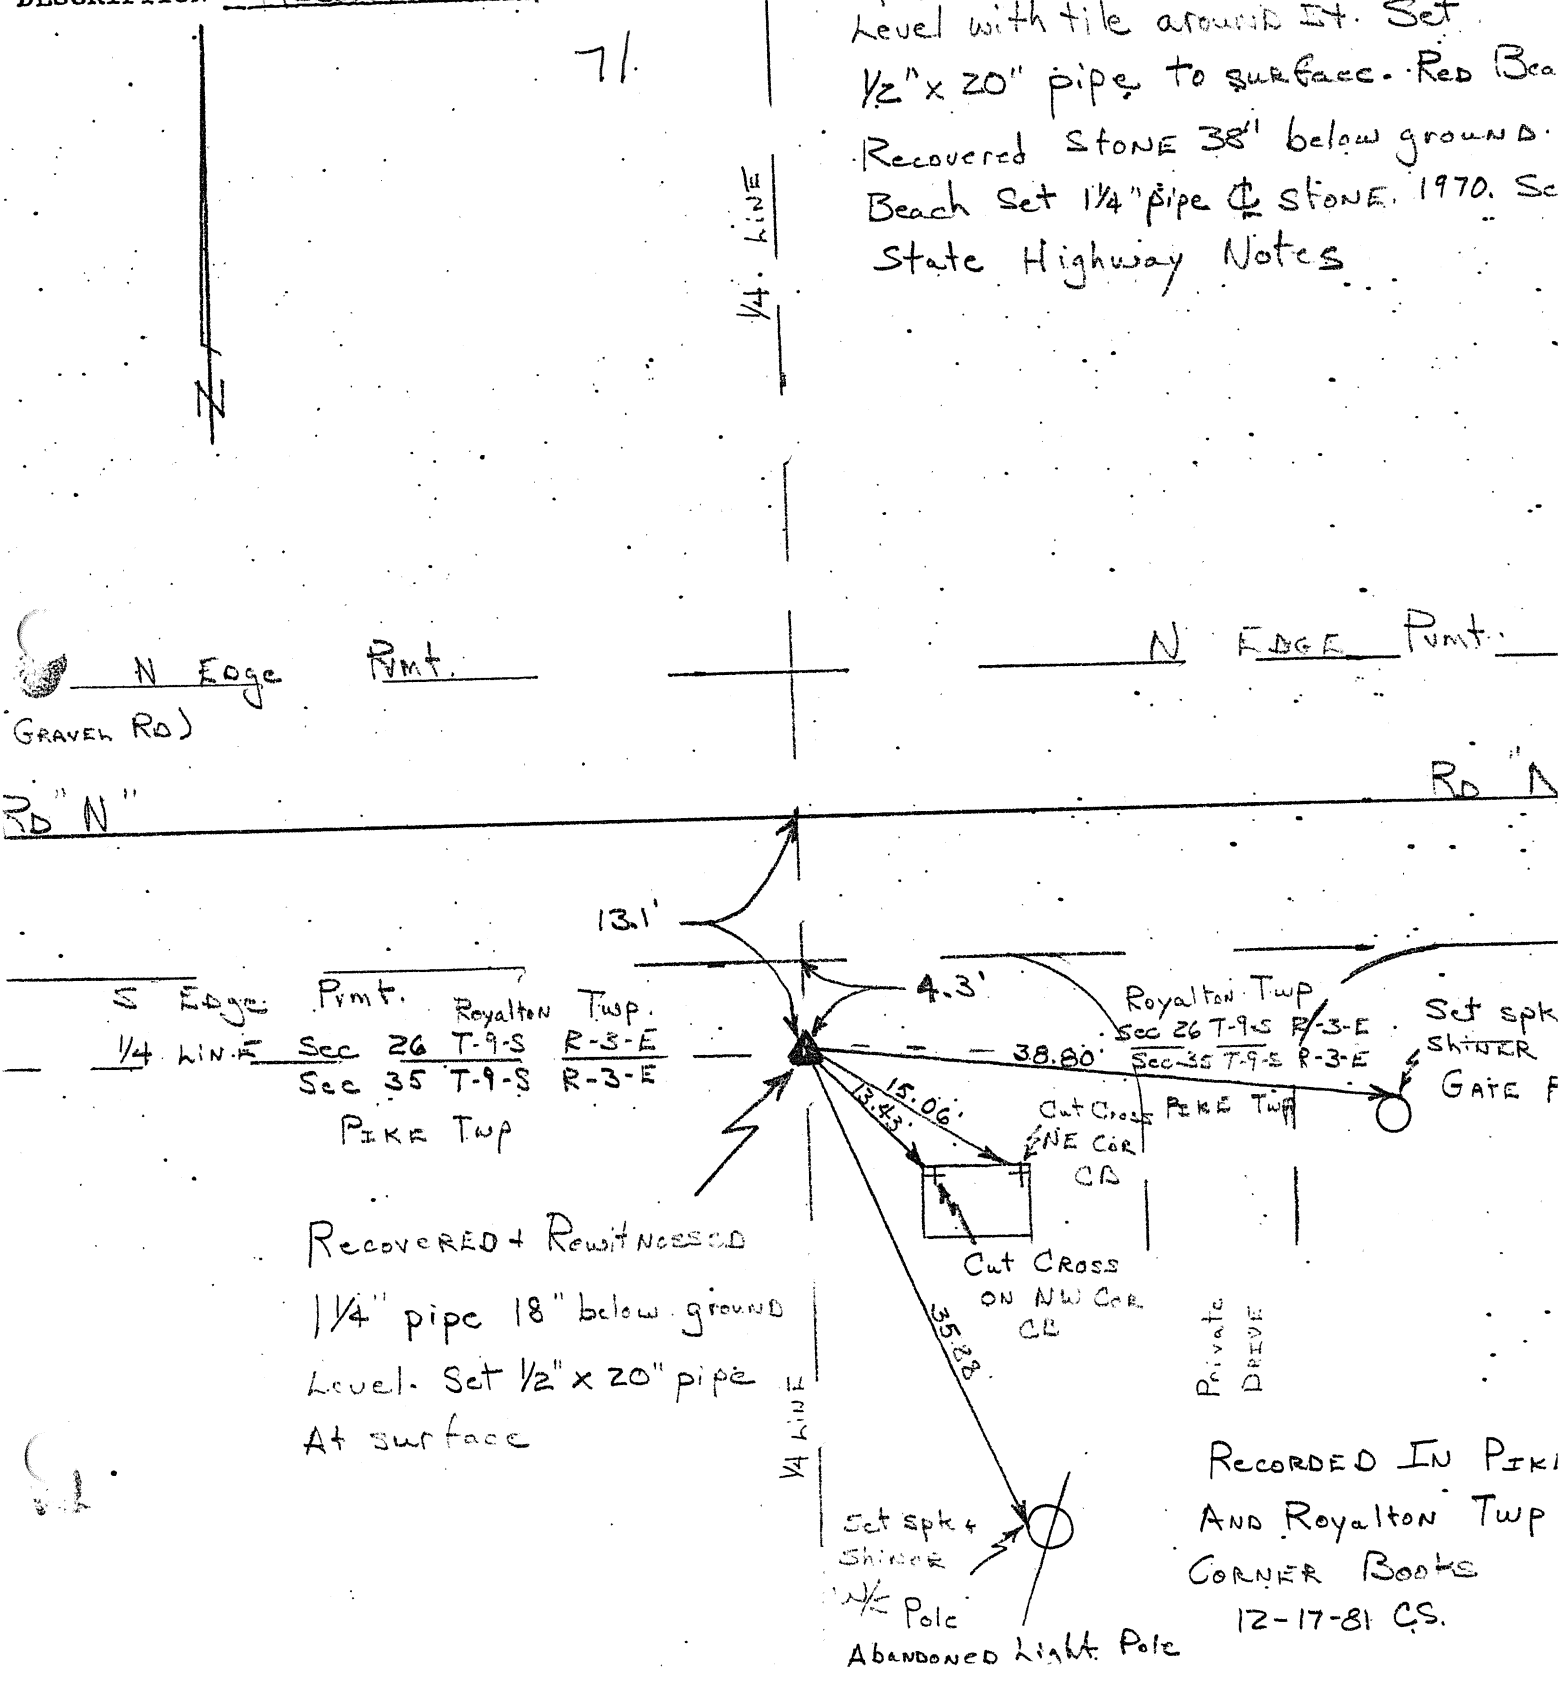 DESCRIPTION
71.
Level with tile around It. Set
1/2" x 20" pipe to surface. Red Bea
Recovered Stone 38" below ground.
Beach Set 1 1/4" pipe ℄ Stone. 1970. Se
State Highway Notes
1/4. Line
N
N Edge Pvmt.
N EDGE Pvmt.
Gravel Rd)
Rd "N"
Rd "N
13.1'
4.3'
S Edge Pvmt.
Royalton Twp.
1/4 Line Sec 26 T-9-S R-3-E
Sec 35 T-9-S R-3-E
Pike Twp
Royalton Twp
Sec 26 T-9-S R-3-E
Sec 35 T-9-S R-3-E
Pike Twp
38.80'
Set spk
Shiner
Gate P
15.06'
13.43'
Cut Cross
NE Cor
CB
Cut Cross
on NW Cor
CB
Recovered + Rewitnessed
1 1/4" pipe 18" below ground
Level. Set 1/2" x 20" pipe
At surface
35.28'
1/4 Line
Private
Drive
Set spk +
Shiner
Pole
Abandoned Light Pole
Recorded In Pik
And Royalton Twp
Corner Books
12-17-81 C.S.